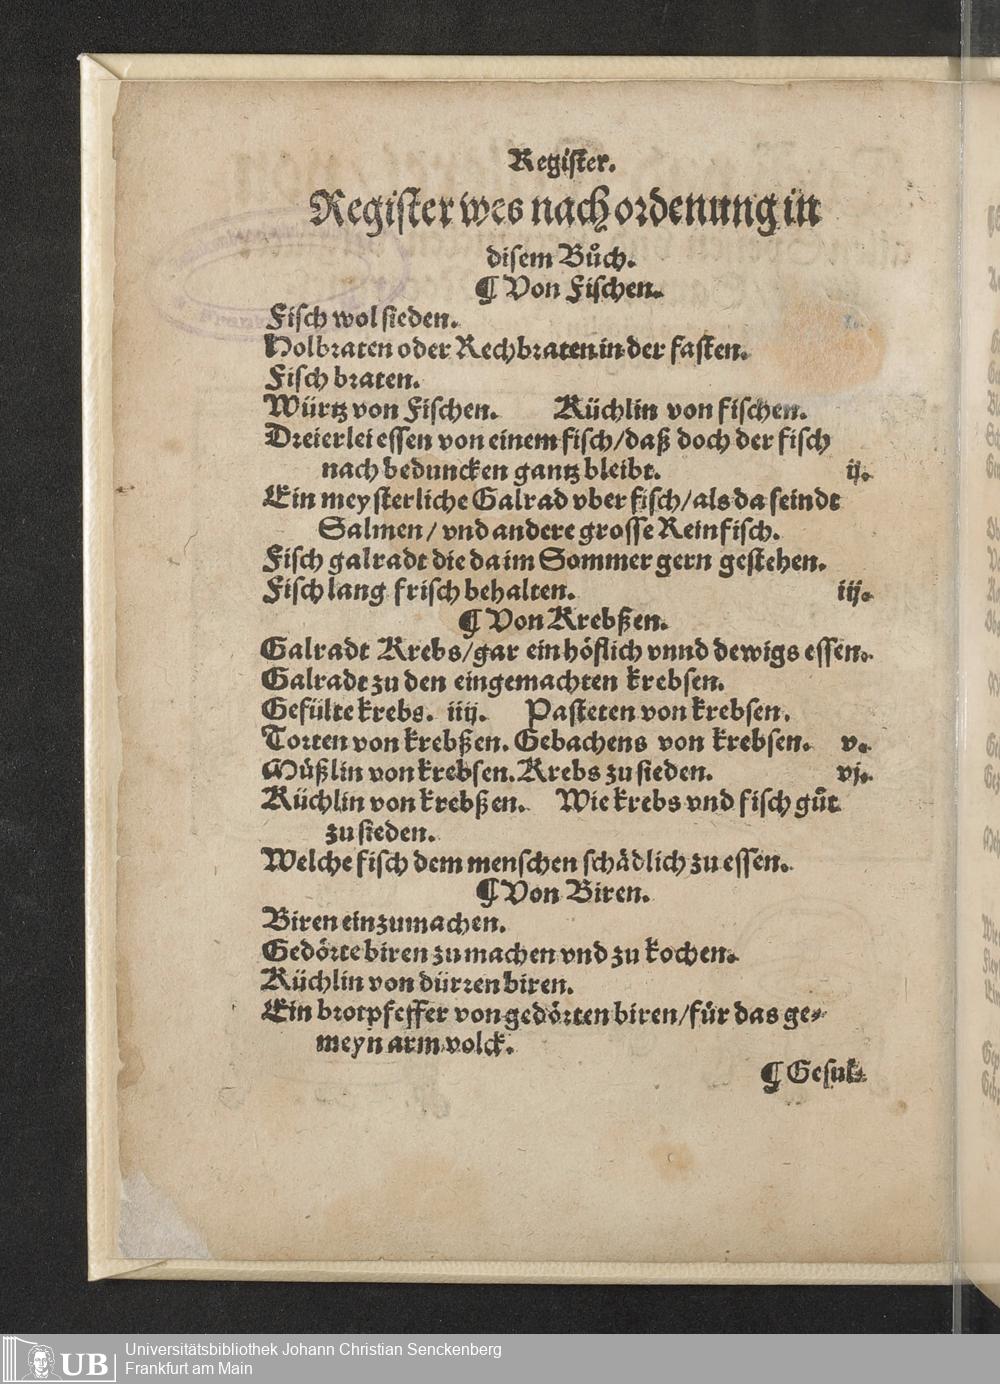 Register.
Register wes nach ordenung in
disem Bůch.
¶ Von Fischen.
Fisch wol sieden.
Holbraten oder Rechbraten in der fasten.
Fisch braten.
Würtz von Fischen. Küchlin von fischen.
Dreierlei essen von einem fisch/daß doch der fisch
nach beduncken gantz bleibt. ij.
Ein meysterliche Galrad vber fisch/als da seindt
Salmen/ vnd andere grosse Reinfisch.
Fisch galradt die da im Sommer gern gestehen.
Fisch lang frisch behalten. iij.
¶ Von Krebßen.
Galradt Krebs/gar ein höflich vnnd dewigs essen.
Galradt zu den eingemachten krebsen.
Gefülte krebs. iiij. Pasteten von krebsen.
Torten von krebßen. Gebachens von krebsen. v.
Müßlin von krebsen. Krebs zu sieden. vj.
Küchlin von krebßen. Wie krebs vnd fisch gůt
zu sieden.
Welche fisch dem menschen schädlich zu essen.
¶ Von Biren.
Biren einzumachen.
Gedörte biren zu machen vnd zu kochen.
Küchlin von dürren biren.
Ein brotpfeffer von gedörten biren/für das ge-
meyn arm volck.
¶ Gesul-
UB
Universitätsbibliothek Johann Christian Senckenberg
Frankfurt am Main